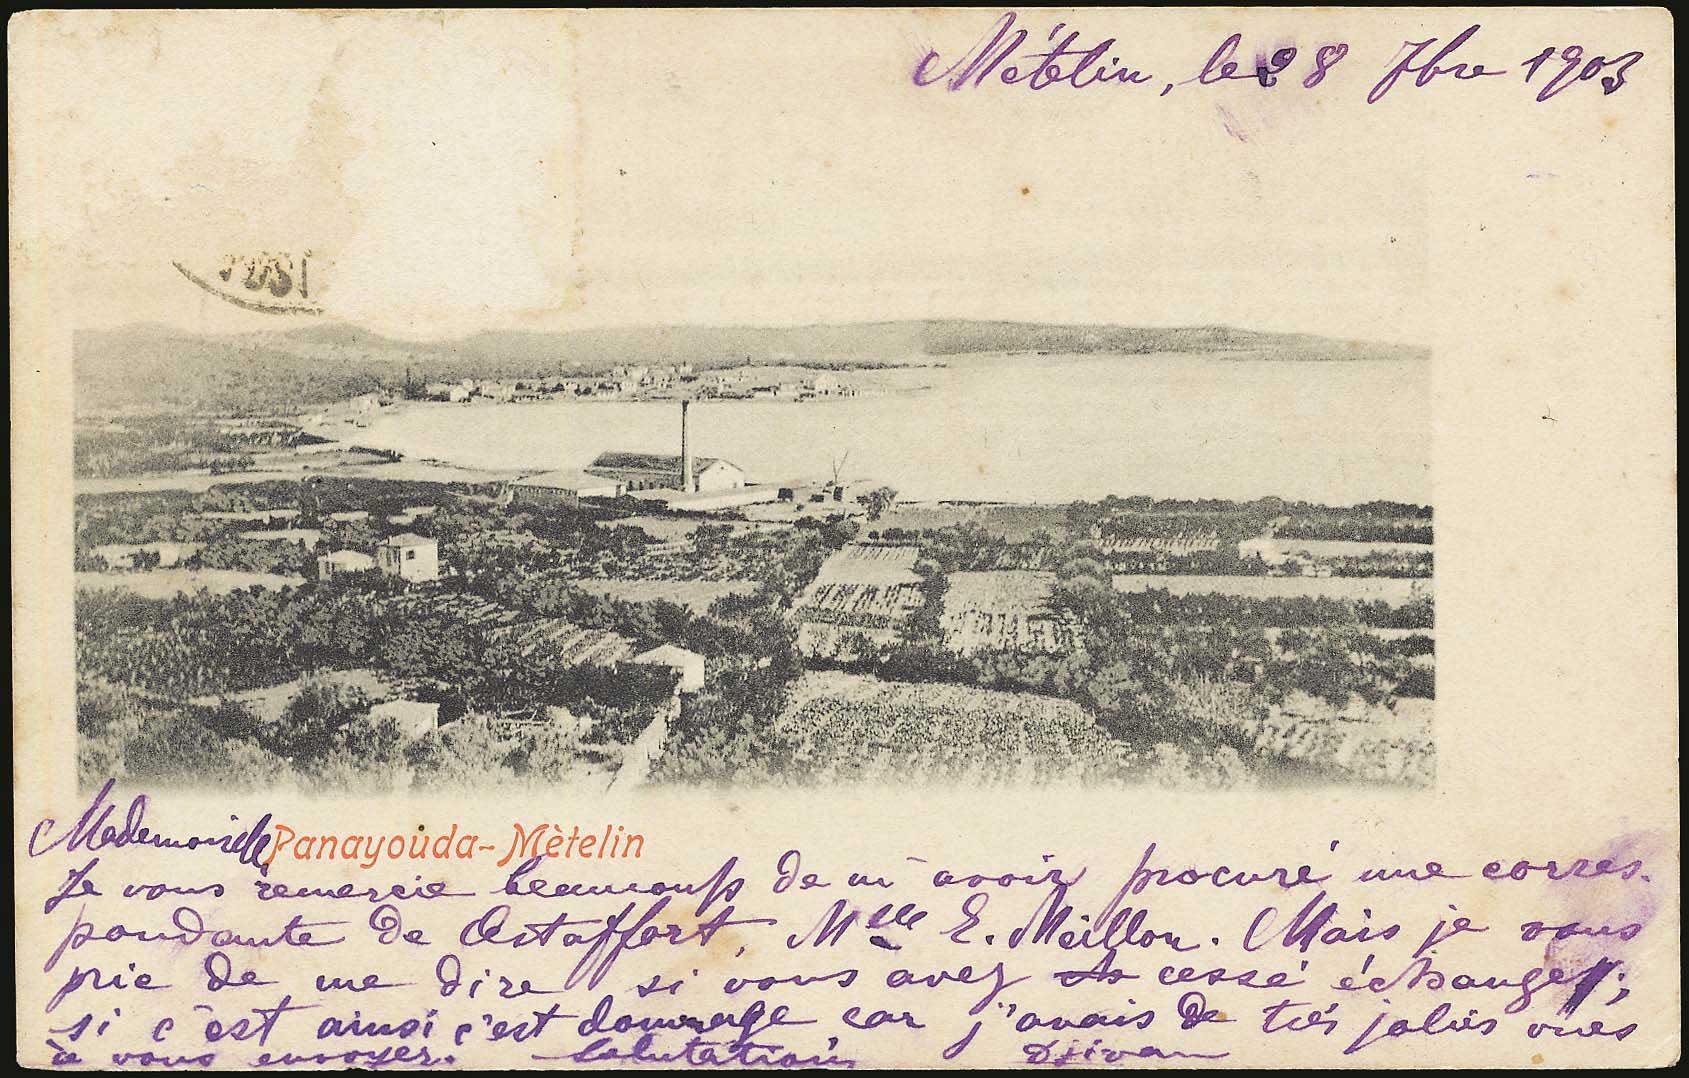 Mételin, le 28 7bre 1903
POST
Mademoiselle
Panayouda-Mètelin
Je vous remercie beaucoup de m'avoir procuré une corres-
pondante de Astaffort, Mlle E. Meillon. Mais je vous
prie de me dire si vous avez cessé échange;
si c'est ainsi c'est dommage car j'avais de très jolies vues
à vous envoyer. Salutations Djivan